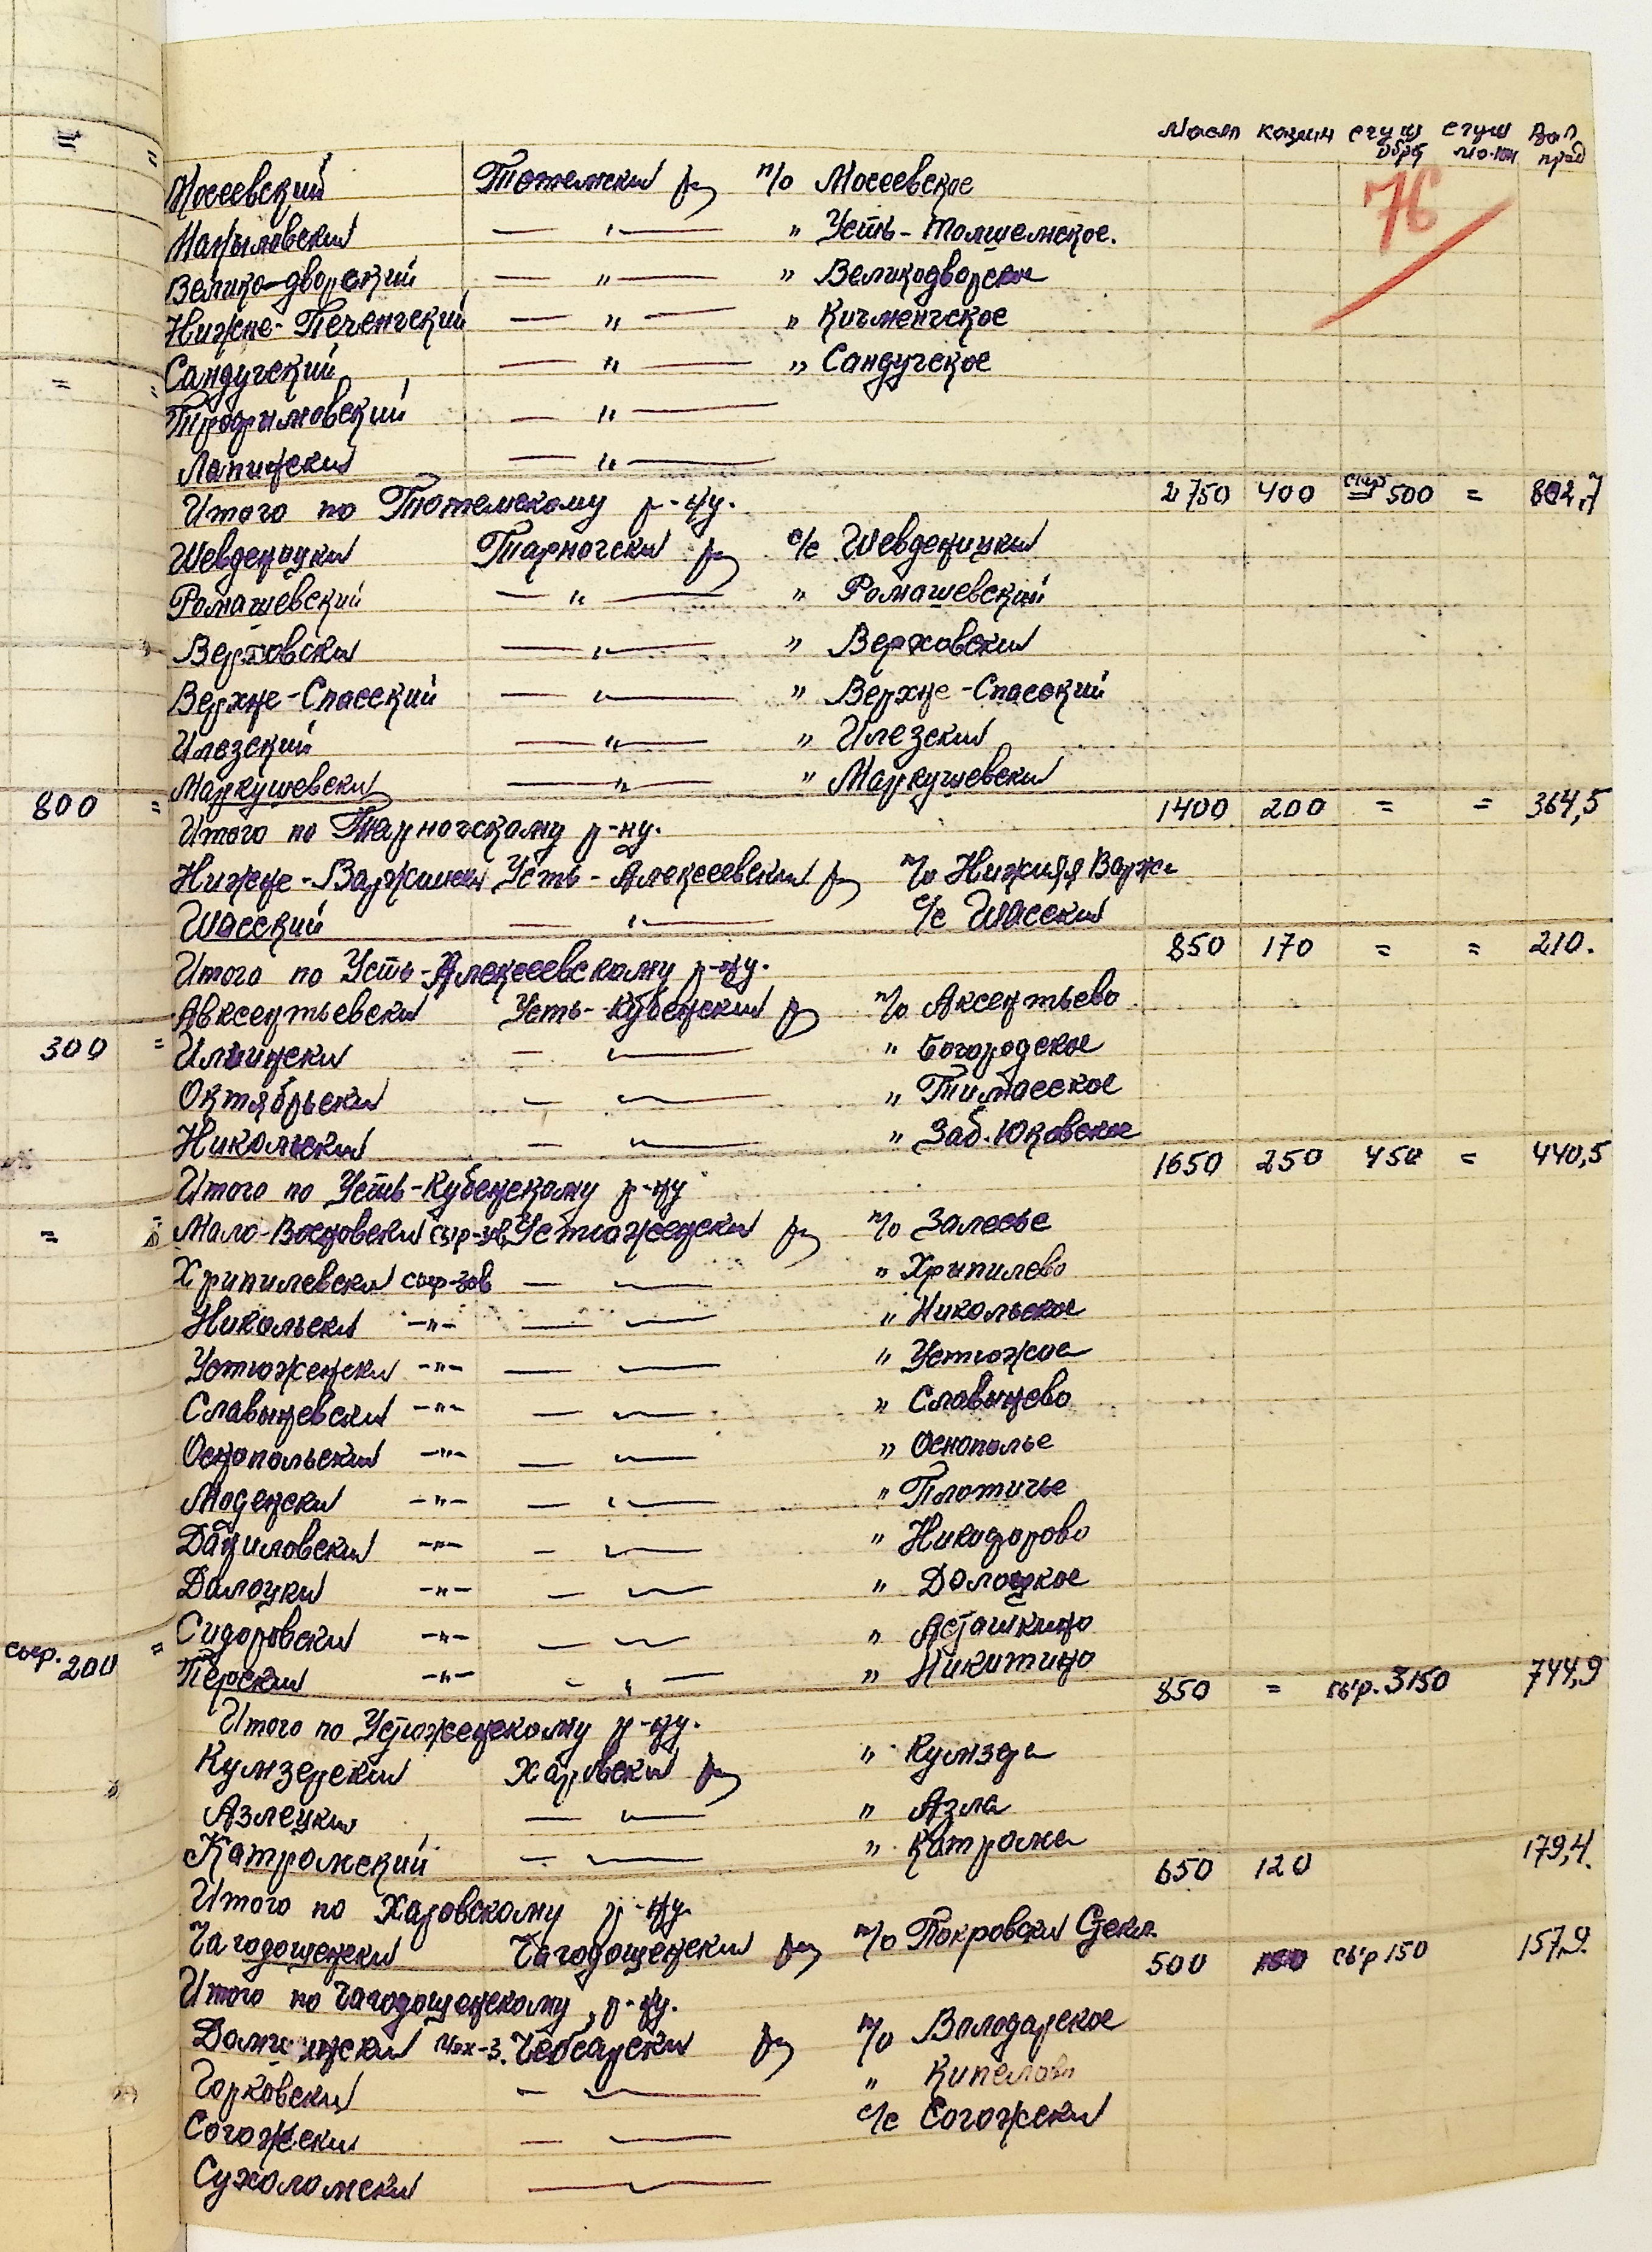 Масл Казеин сгущ обрат сгущ мо-ка Вал прод
76
Мосеевский Тотемский р-н п/о Мосеевское
Маныловский — " — " Усть-Толшемское.
Велико-дворский — " — " Великодворское
Нижне-Печенгский — " — " Кичменгское
Сандугский — " — " Сандугское
Трофимовский — " —
Лапинский — " —
Итого по Тотемскому р-ну. 2750 400 сыр 500 = 802,7
Шевденицкий Тарногский р-н с/с Шевденицкий
Ромашевский — " — " Ромашевский
Верховский — " — " Верховский
Верхне-Спасский — " — " Верхне-Спасский
Илезский — " — " Илезский
Маркушевский — " — " Маркушевский
800 =
Итого по Тарногскому р-ну. 1400 200 = = 364,5
Нижне-Варжинский Усть-Алексеевский р-н п/о Нижняя Варжа
Шасский — " — с/с Шасский
Итого по Усть-Алексеевскому р-ну. 850 170 = = 210.
Авксентьевский Усть-Кубенский р-н п/о Аксентьево
300 = Ильинский — " — " Богородское
Октябрьский — " — " Тимпасское
Никольский — " — " Заб.Юковское
Итого по Усть-Кубенскому р-ну 1650 250 450 = 440,5
= Мало-Восновский сыр-зв. Устюженский р-н п/о Залесье
Хрипилевский сыр-зав — " — " Хрыпилево
Никольский -"- — " — " Никольское
Устюженский -"- — " — " Устюжна
Славыневский -"- — " — " Славынево
Оснопольский -"- — " — " Оснополье
Моденский -"- — " — " Плотичье
Даниловский -"- — " — " Никифорово
Долоцкий -"- — " — " Долоцкое
Сидоровский -"- — " — " Асташкино
сыр. 200 = Перский -"- — " — " Никитино
Итого по Устюженскому р-ну. 850 = сыр. 3150 744,9
Кумзерский Харовский р-н " Кумзера
Азлецкий — " — " Азла
Катромский — " — " Катрома
Итого по Харовскому р-ну. 650 120 179,4.
Чагодощенский Чагодощенский р-н п/о Покровский Стекл.
Итого по Чагодощенскому р-ну. 500 100 сыр 150 157,9.
Домшинский Мех-з. Чебсарский р-н п/о Володарское
Горковский — " — " Кипелово
Согожский — " — с/с Согожский
Сухоломский — " —